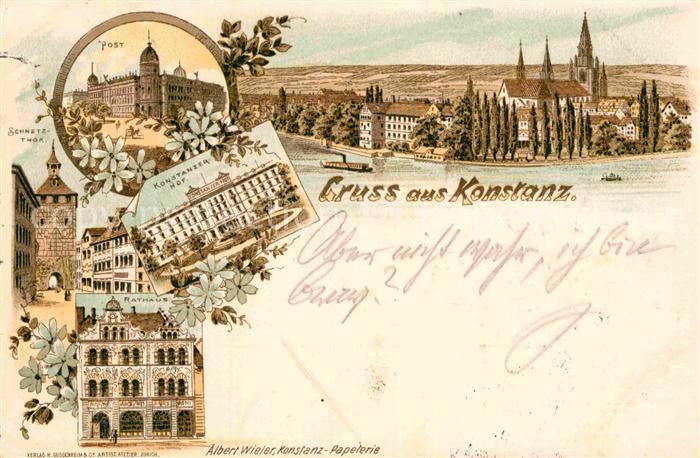 POST
SCHNETZ-
THOR.
KONSTANZER
HOF.
KONSTANZER HOF
RATHAUS
Gruss aus Konstanz.
Aber nicht wahr, ich bin
brav?
VERLAG R. GUGGENHEIM & Co ARTIST. ATELIER, ZÜRICH.
Albert Wieler, Konstanz-Papeterie